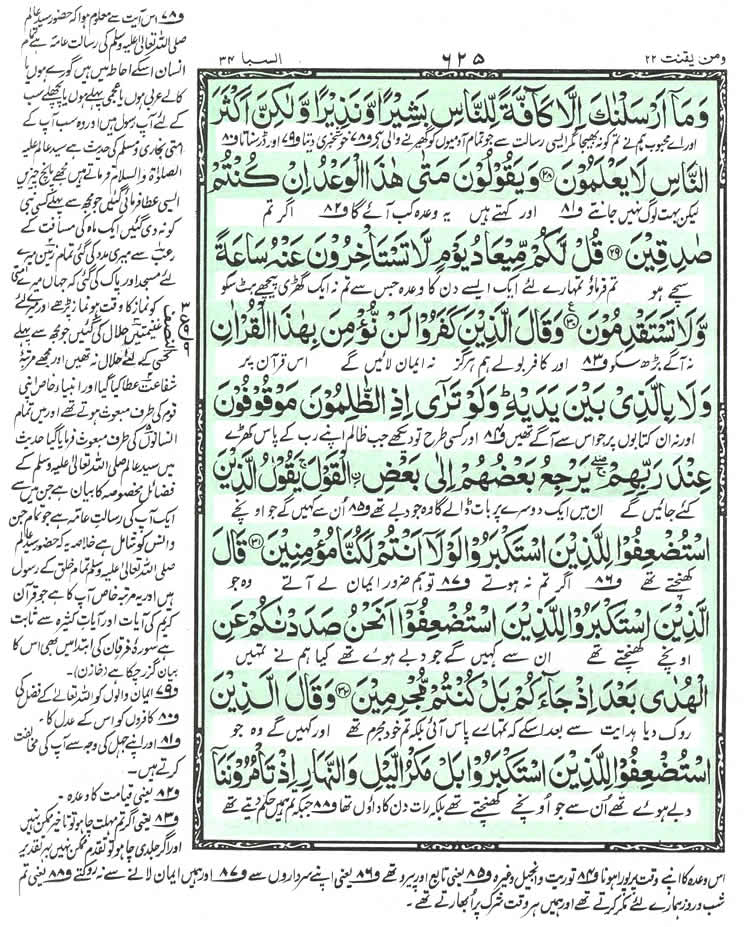 ومن یقنت ۲۲
۶۲۵
السبا ۳۴
وَمَاۤ اَرْسَلْنٰكَ اِلَّا كَآفَّةً لِّلنَّاسِ بَشِیْرًا وَّنَذِیْرًا وَّلٰكِنَّ اَكْثَرَ
اور اے محبوب ہم نے تم کو نہ بھیجا مگر ایسی رسالت سے جو تمام آدمیوں کو گھیرنے والی ہے و۷۸ خوشخبری دیتا و۷۹ اور ڈر سناتا و۸۰
النَّاسِ لَا یَعْلَمُوْنَ ۲۸ وَیَقُوْلُوْنَ مَتٰى هٰذَا الْوَعْدُ اِنْ كُنْتُمْ
لیکن بہت لوگ نہیں جانتے و۸۱ اور کہتے ہیں یہ وعدہ کب آئے گا و۸۲ اگر تم
صٰدِقِیْنَ ۲۹ قُلْ لَّكُمْ مِّیْعَادُ یَوْمٍ لَّا تَسْتَاْخِرُوْنَ عَنْهُ سَاعَةً
سچے ہو تم فرماؤ تمہارے لئے ایک ایسے دن کا وعدہ جس سے تم نہ ایک گھڑی پیچھے ہٹ سکو
وَّلَا تَسْتَقْدِمُوْنَ ۳۰ وَقَالَ الَّذِیْنَ كَفَرُوْا لَنْ نُّؤْمِنَ بِهٰذَا الْقُرْاٰنِ
نہ آگے بڑھ سکو و۸۳ اور کافر بولے ہم ہرگز نہ ایمان لائیں گے اس قرآن پر
وَلَا بِالَّذِیْ بَیْنَ یَدَیْهِ ؕ وَلَوْ تَرٰۤى اِذِ الظّٰلِمُوْنَ مَوْقُوْفُوْنَ
اور نہ ان کتابوں پر جو اس سے آگے تھیں و۸۴ اور کسی طرح تو دیکھے جب ظالم اپنے رب کے پاس کھڑے
عِنْدَ رَبِّهِمْ ۚۖ یَرْجِعُ بَعْضُهُمْ اِلٰى بَعْضِ ِ۟الْقَوْلَ ۚ یَقُوْلُ الَّذِیْنَ
کئے جائیں گے ان میں ایک دوسرے پر بات ڈالے گا وہ جو دبے تھے و۸۵ اُن سے کہیں گے جو اونچے
اسْتُضْعِفُوْا لِلَّذِیْنَ اسْتَكْبَرُوْا لَوْلَاۤ اَنْتُمْ لَكُنَّا مُؤْمِنِیْنَ ۳۱ قَالَ
کھنچتے تھے و۸۶ اگر تم نہ ہوتے و۸۷ تو ہم ضرور ایمان لے آتے وہ جو
الَّذِیْنَ اسْتَكْبَرُوْا لِلَّذِیْنَ اسْتُضْعِفُوْۤا اَنَحْنُ صَدَدْنٰكُمْ عَنِ
اونچے کھنچتے تھے ان سے کہیں گے جو دبے ہوئے تھے کیا ہم نے تمہیں
الْهُدٰى بَعْدَ اِذْ جَآءَكُمْ بَلْ كُنْتُمْ مُّجْرِمِیْنَ ۳۲ وَقَالَ الَّذِیْنَ
روک دیا ہدایت سے بعد اسکے کہ تمہارے پاس آئی بلکہ تم خود مجرم تھے اور کہیں گے وہ جو
اسْتُضْعِفُوْا لِلَّذِیْنَ اسْتَكْبَرُوْا بَلْ مَكْرُ الَّیْلِ وَالنَّهَارِ اِذْ تَاْمُرُوْنَنَاۤ
دبے ہوئے تھے اُن سے جو اُونچے کھنچتے تھے بلکہ رات دن کا داؤں تھا و۸۸ جبکہ تم ہمیں حکم دیتے تھے
و۷۸ اس آیت سے معلوم ہوا کہ حضور سید عالم
صلی اللہ تعالیٰ علیہ وسلم کی رسالت عامہ ہے تمام
انسان اسکے احاطہ میں ہیں گورے ہوں یا
کالے عربی ہوں یا عجمی پہلے ہوں یا پچھلے سب
کے لئے آپ رسول ہیں اور وہ سب آپ کے
امتی بخاری و مسلم کی حدیث ہے سید عالم علیہ
الصلوٰۃ والسلام فرماتے ہیں مجھے پانچ چیزیں
ایسی عطا فرمائی گئیں جو مجھ سے پہلے کسی نبی
کو نہ دی گئیں ایک ماہ کی مسافت کے
رعب سے میری مدد کی گئی تمام زمین میرے
لئے مسجد اور پاک کی گئی کہ جہاں میرے امتی
کو نماز کا وقت ہو نماز پڑھے اور میرے لئے
غنیمتیں حلال کی گئیں جو مجھ سے پہلے
کسی کے لئے حلال نہ تھیں اور مجھے مرتبۂ
شفاعت عطا کیا گیا اور انبیا خاص اپنی
قوم کی طرف مبعوث ہوتے تھے اور میں تمام
انسانوں کی طرف مبعوث فرمایا گیا حدیث
میں سید عالم صلی اللہ تعالیٰ علیہ وسلم کے
فضائل مخصوصہ کا بیان ہے جن میں سے
ایک آپ کی رسالت عامہ ہے جو تمام جن
و انس کو شامل ہے خلاصہ یہ کہ حضور سید عالم
صلی اللہ تعالیٰ علیہ وسلم تمام خلق کے رسول
ہیں اور یہ مرتبہ خاص آپ کا ہے جو قرآن
کریم کی آیات اور احادیث کثیرہ سے ثابت
ہے سورۂ فرقان کی ابتدا میں بھی اس کا
بیان گزر چکا ہے (خازن)
و۷۹ ایمان والوں کو اللہ تعالیٰ کے فضل کی
و۸۰ کافروں کو اس کے عدل کا۔
و۸۱ اور اپنے جہل کی وجہ سے آپ کی مخالفت
کرتے ہیں۔
و۸۲ یعنی قیامت کا وعدہ۔
و۸۳ یعنی اگر تم مہلت چاہو تو تاخیر ممکن نہیں
اور اگر جلدی چاہو تو تقدم ممکن نہیں بہر تقدیر
اس وعدہ کا اپنے وقت پر پورا ہونا و۸۴ توریت و انجیل وغیرہ و۸۵ یعنی تابع اور پیرو تھے و۸۶ یعنی اپنے سرداروں سے و۸۷ اور ہمیں ایمان لانے سے نہ روکتے و۸۸ یعنی تم
شب و روز ہمارے لئے مکر کرتے تھے اور ہمیں ہر وقت شرک پر اُبھارتے تھے۔